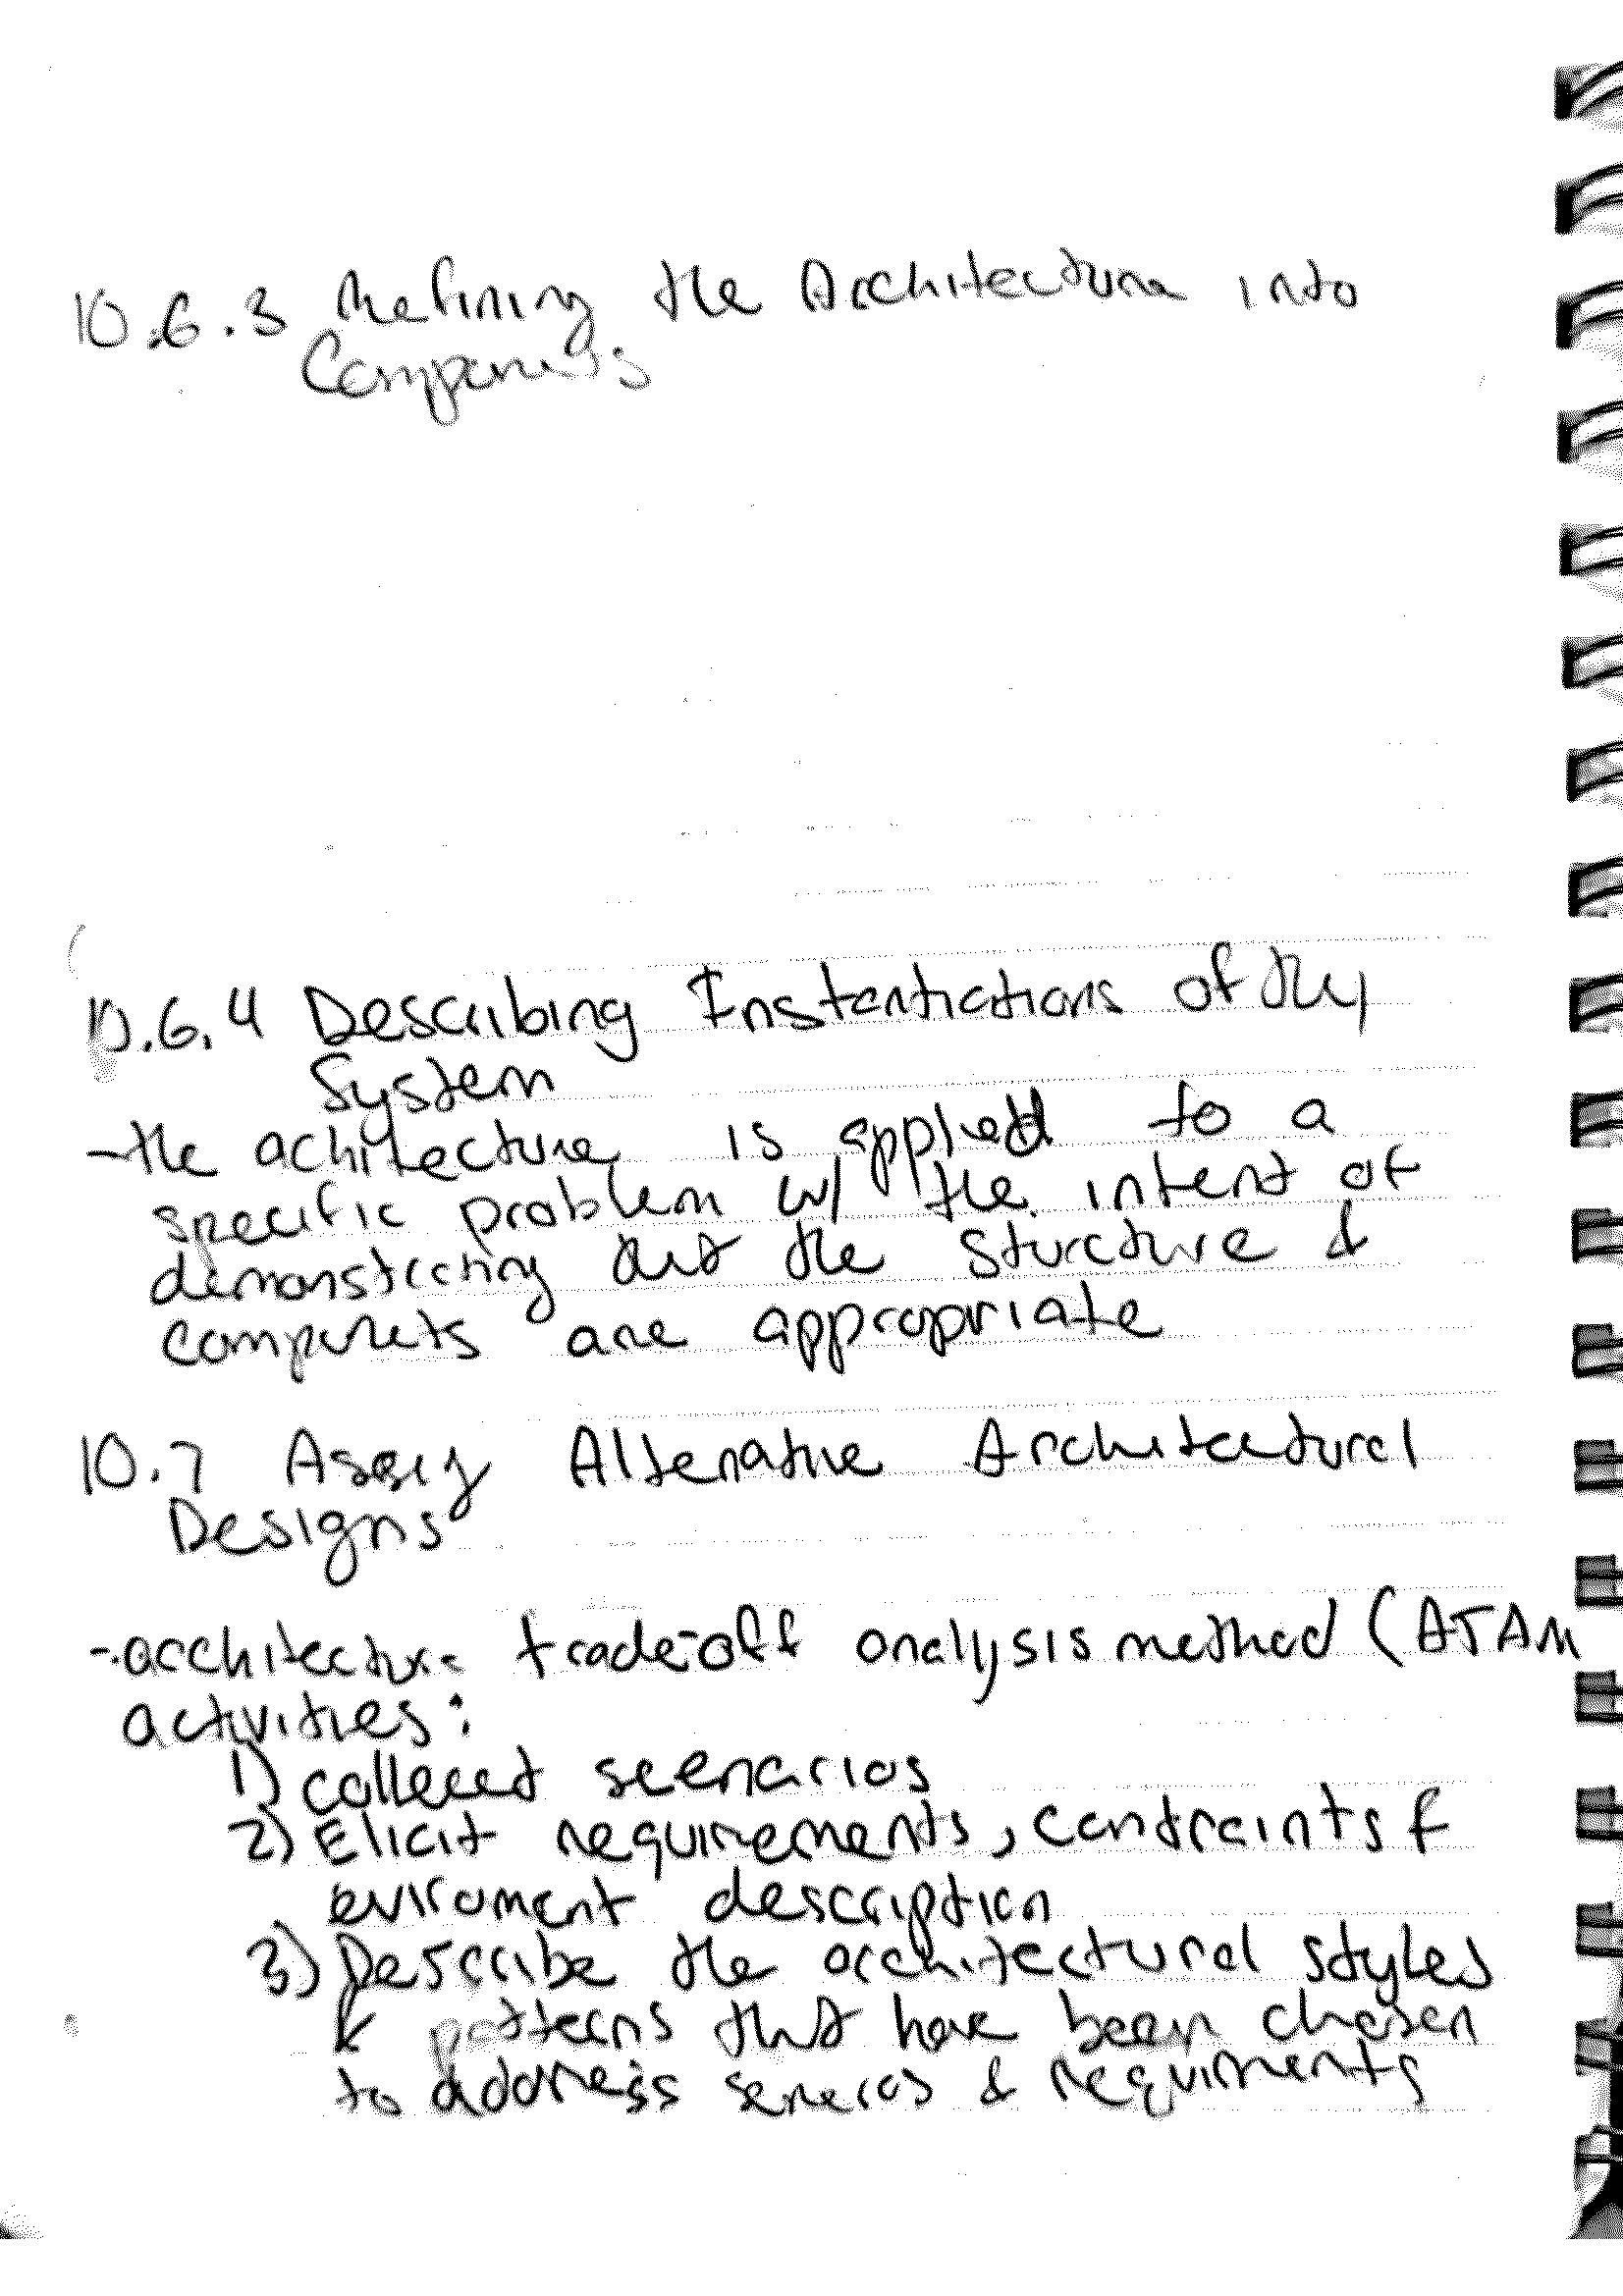 10.6.3 Refining the Architecture into
Components
10.6.4 Describing Instantiations of the
System
-the achitecture is applied to a
specific problem w/ the intent of
demonstrating that the structure &
components are appropriate
10.7 Alternative Architectural
Designs
-architecture trade-off analysis method (ATAM
activities:
1) collecect scenarios
2) Elicit requirements, contraints &
eviroment description
3) Describe the architectural styles
& patterns that have been chosen
to address & requirments